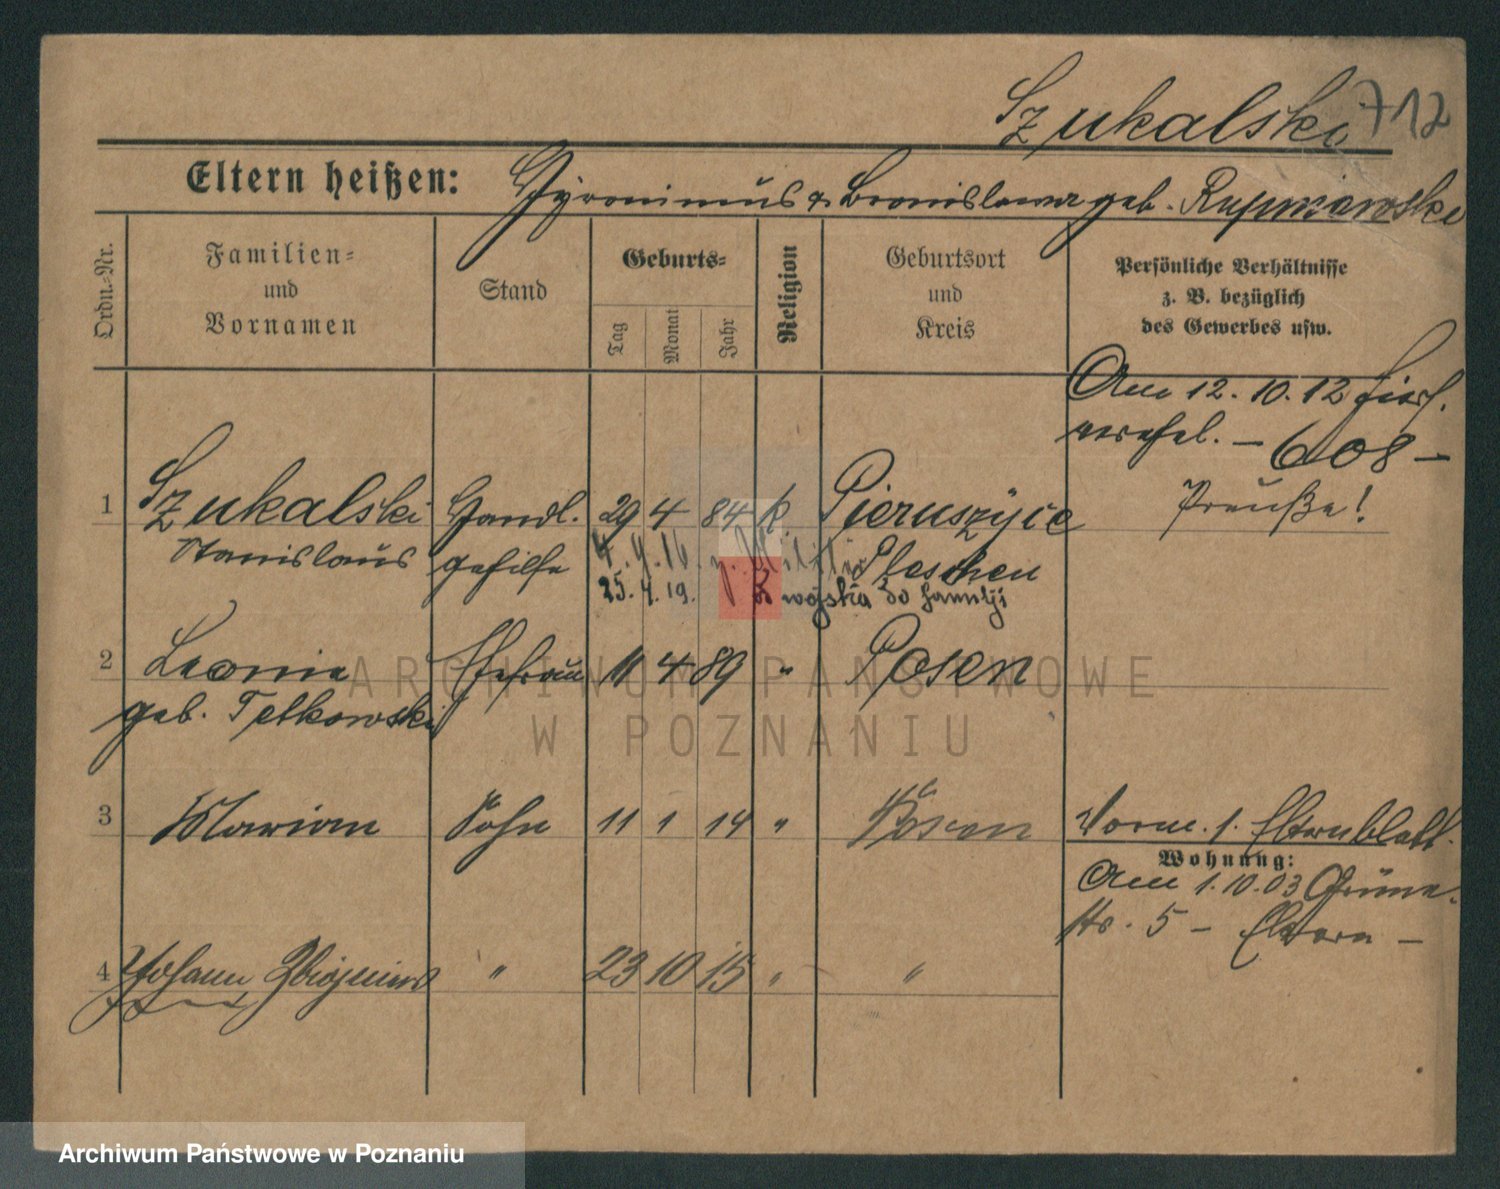 Szukalski 712
Eltern heißen: Hyronimus & Bronislawa geb. Rupniewska
Ordn.-Nr.
Familien-
und
Vornamen
Stand
Geburts-
Tag
Monat
Jahr
Religion
Geburtsort
und
Kreis
Persönliche Verhältnisse
z. B. bezüglich
des Gewerbes usw.
Am 12. 10. 12
608 -
Preuße!
1 Szukalski Handl. 29 4 84 k. Pieruszyce
Stanislaus gehilfe 4. 9. 16. z. Militär Pleschen
25. 4. 19. z wojska do familji
2 Leonie Ehefrau 11 4 89 " Posen
geb. Tetkowski
3 Marian Sohn 11 1 14 " Posen
Vorm. 1. Elternblatt.
Wohnung:
Am 1.10.03 Grüne-
str. 5 - Eltern -
4 Johann " 23 10 15 " "
ARCHIWUM PAŃSTWOWE
W POZNANIU
Archiwum Państwowe w Poznaniu